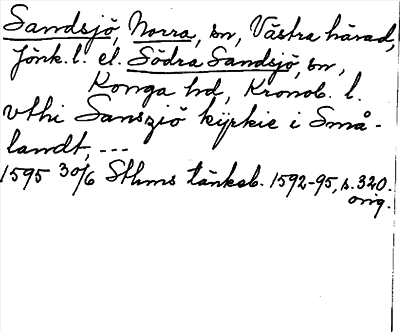 Sandsjö, Norra, sn, Västra härad,
Jönk. l. el. Södra Sandsjö, sn,
Konga hd, Kronob. l.
vthi Sansziö kijrkie i Små-
landt, ---
1595 30/6 Sthms tänkeb. 1592-95, s. 320.
orig.